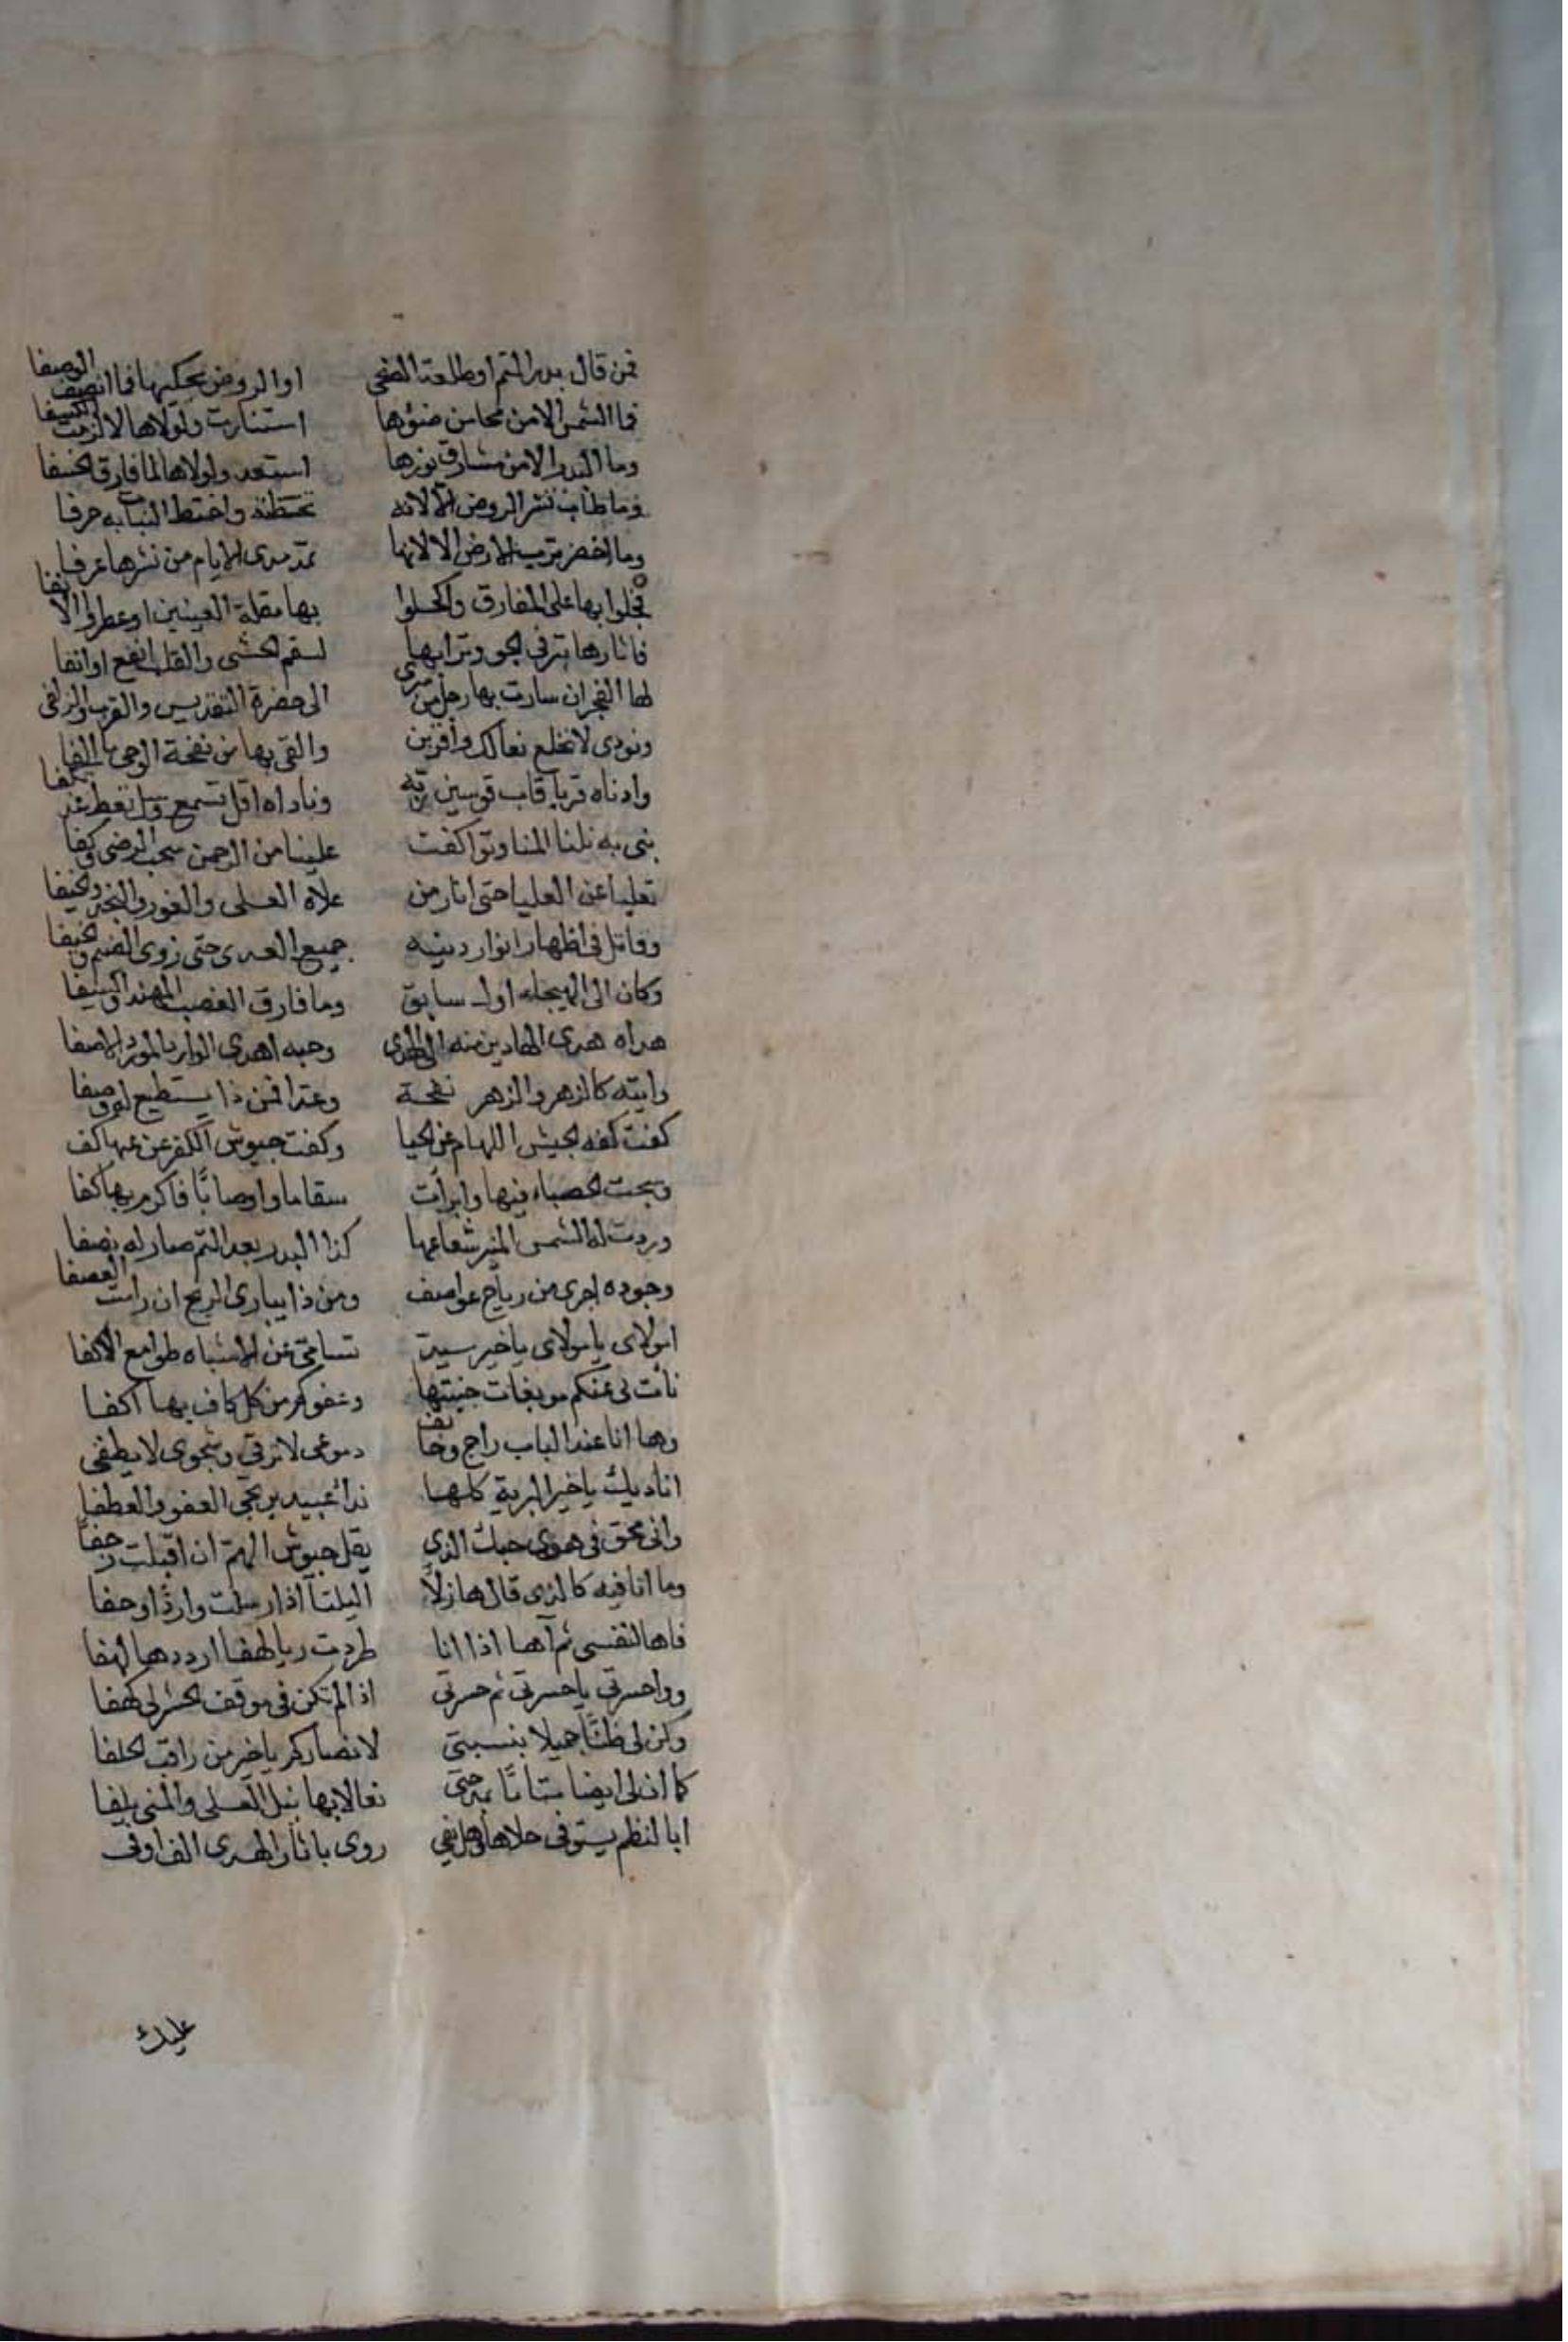 فمن قال بدر التم او طلعة الضحى او الروض يحكيها فما انصف الوصفا
فما الشمس الا من محاسن ضوءها استنارت ولولاها لالزمت الكسفا
وما البدر الا من مشارق نورها استعد ولولاها لما فارق الخسفا
وما طاب نشر الروض الا لانه تخطته واختط النبا به حرفا
وما اخضر ترب الارض الا لانها تمد مدى الايام من نشرها عرفا
فجلوا بها على المفارق واكحلوا بها مقلة العينين او عطروا الانفا
فاثارها تبر في الجو وترابها لسقم الحشى والقلب انفع او انفا
لها الفجر ان سارت بها رجل من سرى الى حضرة التقديس والقرب والزلفى
ونودي لا تخلع نعالك وافزين والقي بها من نفحة الوحي ما القا
وادناه قربا قاب قوسين ربه وناداه اقل تسمع وسل تعط
نبي به نلنا المنا وتواكفت علينا من الرحمن سحب الرضى وكفا
تعليا عن العليا حتى انار من علاه العلى والغور والنجد والخيفا
وقاتل في اظهار انوار دينه جميع العدى حتى زوى الضيم والحيفا
وكان الى الهيجاء اول سابق وما فارق العضب المهند والسيفا
هداه هدى الهادين منه الى الهدى وحبه اهدى الوارد المورد الاصفا
وايته كالزهر والزهر نفحة وعدا فمن ذا يستطيع لها وصفا
كفت كفه الجيش اللهام عن الحيا وكفت جيوش الكفر عن غيها كف
وسبحت الحصباء فيها وابرأت سقاما واوصابًا فاكرم بها كفا
وردت له الشمس المنير شعاعها كذا البدر بعد التم صار له نصفا
وجوده اجرى من رياح عواصف ومن ذا يبارى الريح ان رامت العصفا
امولاى يا مولاى يا خير سيد تسامى عن الاشباه طوامع الاكفا
نأت لى عنكم موبقات جنيتها وعفوكم من كل كاف بها اكفا
وها انا عند الباب راج وخائف دموعى لا ترقى وشجوى لا يطفى
اناديك يا خير البرية كلها ندا عبيد يرتجى العفو والعطفا
وانى محق فى هوى حبك الذى يفل جيوش الهم ان اقبلت زحفًا
وما انا فيه كالذى قال هازلًا اليلتنا اذ ارسلت واردًا وحفا
فاها لنفسى ثم آها اذا انا طردت ويا لهفا ارددها لهفا
وواحسرتى يا حسرتى ثم حسرتى اذا لم تكن فى موقف الحشر لى كهفا
ولكن لى ظنًّا جميلا بنسبتى لانصاركم يا خير من راقب الحلفا
كما ان لى ايضا متاتًا بمدحتى نعالا بها نيل العلى والمنى يلفا
ابا لنظم يستوفى حلاها وهل يفي روى باثار الهدى الف اوفى
عليك